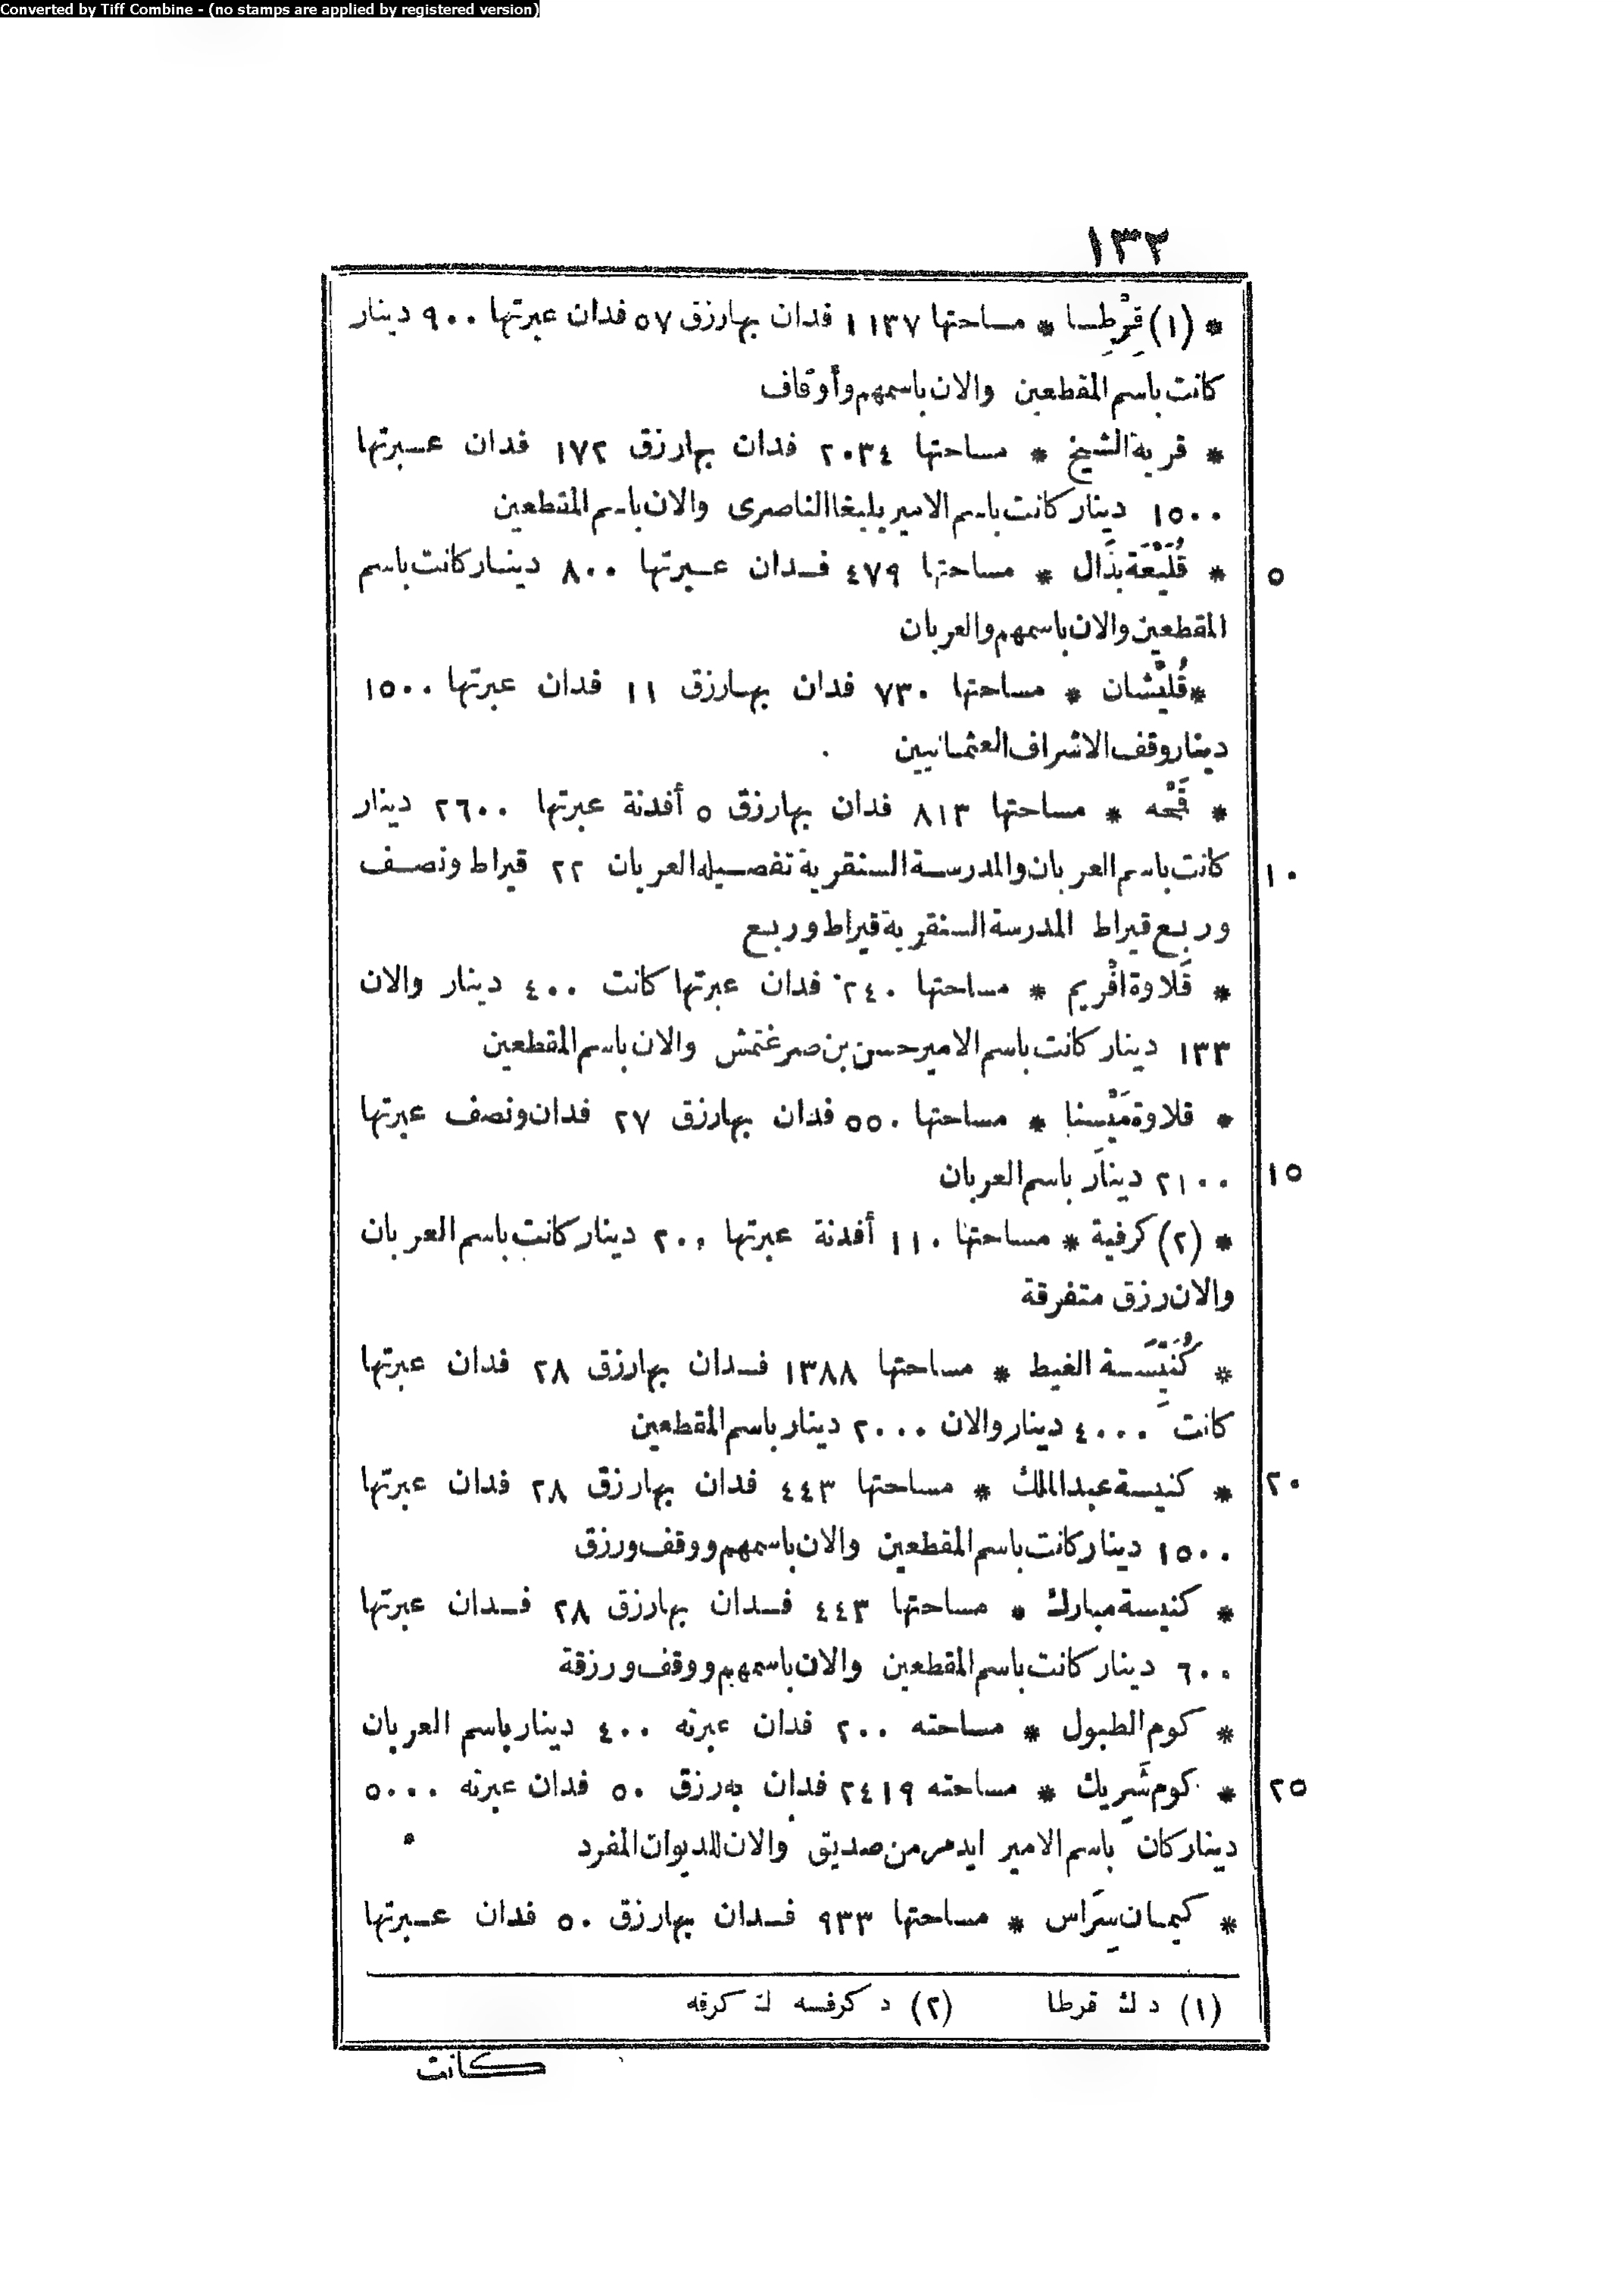 Converted by Tiff Combine - (no stamps are applied by registered version)
١٣٢
* (١) قِرْطِسا * مساحتها ١١٣٧ فدان بهارزق ٥٧ فدان عبرتها ٩٠٠ دينار
كانت باسم المقطعين والان باسمهم وأوقاف
* قرية الشيخ * مساحتها ٢٠٣٤ فدان بهارزق ١٧٢ فدان عبرتها
١٥٠٠ دينار كانت باسم الامير يلبغا الناصرى والان باسم المقطعين
* قُلَيْعَة بذَال * مساحتها ٤٧٩ فدان عبرتها ٨٠٠ دينار كانت باسم ٥
المقطعين والان باسمهم والعربان
* قُلَيْشان * مساحتها ٧٣٠ فدان بهارزق ١١ فدان عبرتها ١٥٠٠
دينار وقف الاشراف العثمانيين
* قَمْحه * مساحتها ٨١٣ فدان بهارزق ٥ أفدنة عبرتها ٢٦٠٠ دينار
كانت باسم العربان والمدرسة السنقرية تفصيله العربان ٢٢ قيراط ونصف ١٠
وربع قيراط المدرسة السنقرية قيراط وربع
* قَلاوة افْريم * مساحتها ٢٤٠ فدان عبرتها كانت ٤٠٠ دينار والان
١٣٣ دينار كانت باسم الامير حسن بن صرغتمش والان باسم المقطعين
* قلاوة مَيْسنا * مساحتها ٥٥٠ فدان بهارزق ٢٧ فدان ونصف عبرتها
٢١٠٠ دينار باسم العربان ١٥
* (٢) كرفية * مساحتها ١١٠ أفدنة عبرتها ٢٠٠ دينار كانت باسم العربان
والان رزق متفرقة
* كُنَيِّسَة الغيط * مساحتها ١٣٨٨ فدان بهارزق ٢٨ فدان عبرتها
كانت ٤٠٠٠ دينار والان ٢٠٠٠ دينار باسم المقطعين
* كنيسة عبد الملك * مساحتها ٤٤٣ فدان بهارزق ٢٨ فدان عبرتها ٢٠
١٥٠٠ دينار كانت باسم المقطعين والان باسمهم ووقف ورزق
* كنيسة مبارك * مساحتها ٤٤٣ فدان بهارزق ٢٨ فدان عبرتها
٦٠٠ دينار كانت باسم المقطعين والان باسمهم ووقف ورزقة
* كوم الطبول * مساحته ٢٠٠ فدان عبرته ٤٠٠ دينار باسم العربان
* كوم شَرِيك * مساحته ٢٤١٩ فدان به رزق ٥٠ فدان عبرته ٥٠٠٠ ٢٥
دينار كان باسم الامير ايدمر من صديق والان للديوان المفرد
* كيمان سِرَاس * مساحتها ٩٣٣ فدان بهارزق ٥٠ فدان عبرتها
(١) د ك قرطا (٢) د كرفسه ك كرفه
كانت